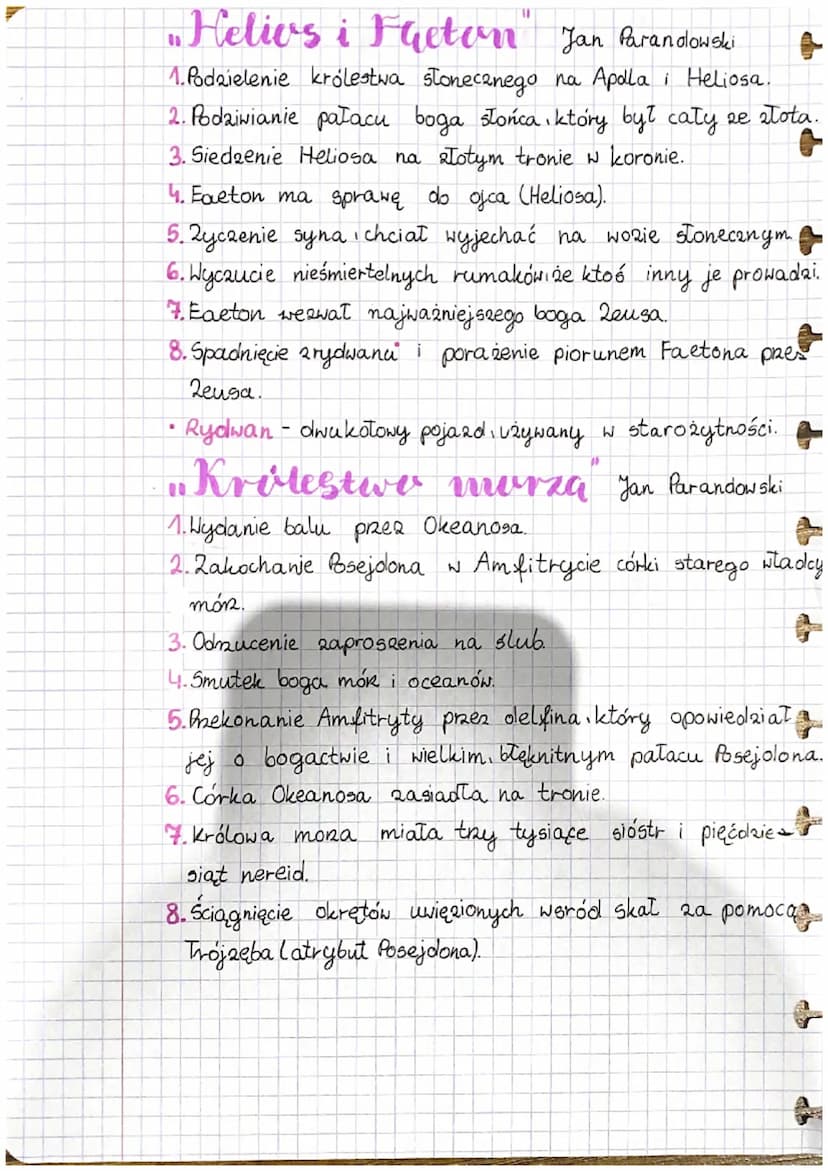 „Helios i Faeton" Jan Parandowski
1. Podzielenie królestwa słonecznego na Apolla i Heliosa.
2. Podziwianie pałacu boga słońca, który był cały ze złota.
3. Siedzenie Heliosa na złotym tronie w koronie.
4. Faeton ma sprawę do ojca (Heliosa).
5. Życzenie syna, chciał wyjechać na wozie słonecznym.
6. Wyczucie nieśmiertelnych rumaków, że ktoś inny je prowadzi.
7. Faeton wezwał najważniejszego boga Zeusa.
8. Spadnięcie z rydwanu i porażenie piorunem Faetona przez
Zeusa.
• Rydwan - dwukołowy pojazd, używany w starożytności.
„Królestwo morza" Jan Parandowski
1. Wydanie balu przez Okeanosa.
2. Zakochanie Posejdona w Amfitrycie córki starego władcy
mórz.
3. Odrzucenie zaproszenia na ślub.
4. Smutek boga mórz i oceanów.
5. Przekonanie Amfitryty przez delfina, który opowiedział
jej o bogactwie i wielkim, błęknitnym pałacu Posejdona.
6. Córka Okeanosa zasiadła na tronie.
7. Królowa morza miała trzy tysiące sióstr i pięćdzie-
siąt nereid.
8. Ściągnięcie okrętów uwięzionych wsród skał za pomocą
Trójzęba (atrybut Posejdona).